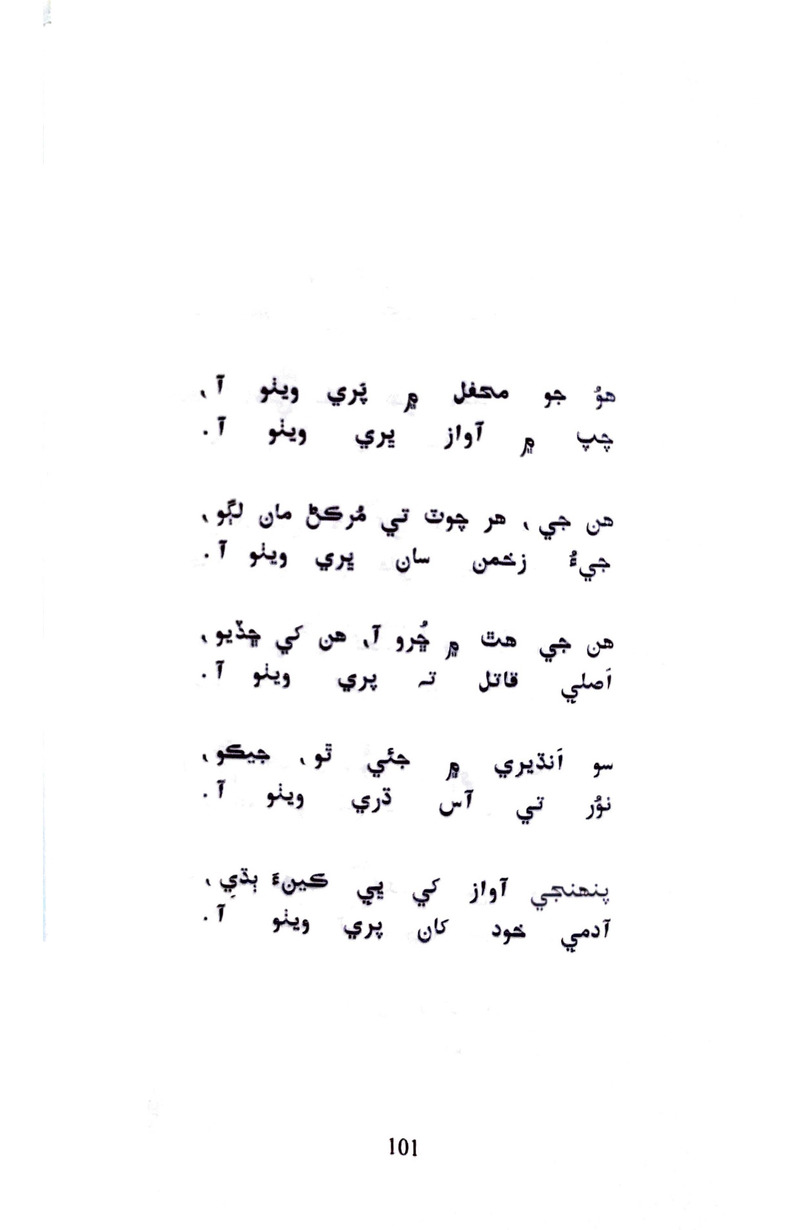 هوُ جو محفل ۾ ڀَري ويٺو آ،
چپ ۾ آواز ڀري ويٺو آ.
هن جي، هر چوٽ تي مُرڪڻ مان لڳو،
جيءُ زخمن سان ڀري ويٺو آ.
هن جي هٿ ۾ ڇُرو آ، هن کي ڇڏيو،
اَصلي قاتل تہ پري ويٺو آ.
سو اَنڌيري ۾ جئي ٿو، جيڪو،
نوُر تي آس ڌري ويٺو آ.
پنهنجي آواز کي ڀي ڪينءَ ٻڌيِ،
آدمي خود کان پري ويٺو آ.
101